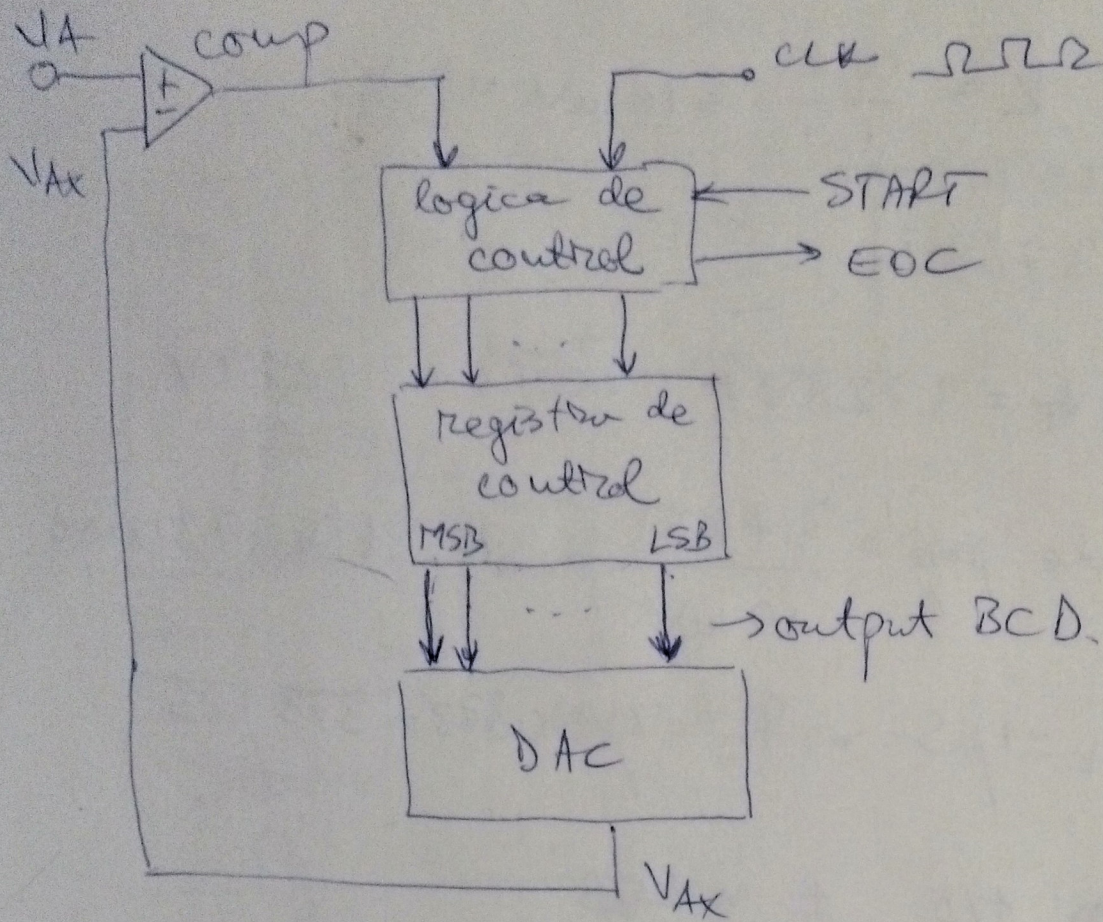 VA
comp
CLK
VAX
logica de
control
START
EOC
registro de
control
MSB
LSB
output BCD.
DAC
VAX